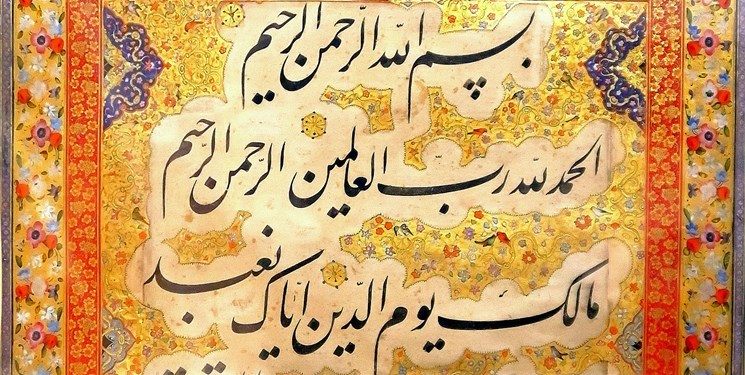 بسم الله الرحمن الرحیم
الحمد لله ربّ العالمین الرّحمن الرّحیم
مالک یوم الدّین ایّاک نعبد